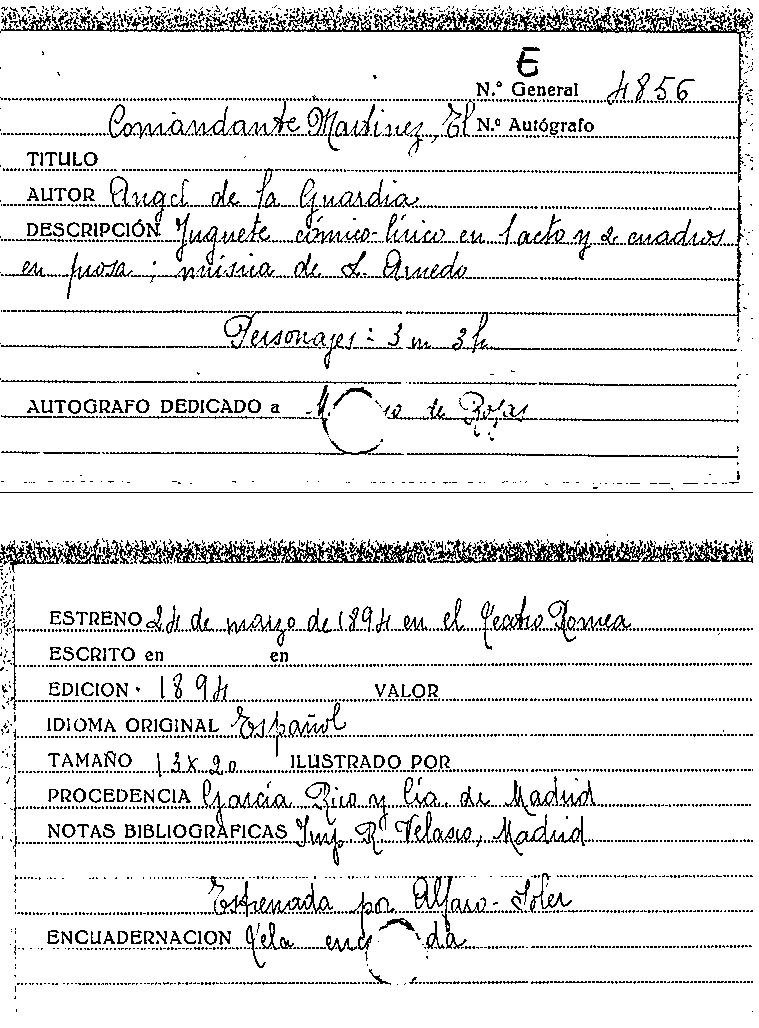 E
N.º General 4856
Comandante Martinez, El N.º Autógrafo
TITULO
AUTOR Angel de la Guardia
DESCRIPCIÓN Juguete cómico-lírico en 1 acto y 2 cuadros
en prosa; música de L. Arnedo
Personajes: 3 m 3 h
AUTOGRAFO DEDICADO a de Rojas
ESTRENO 24 de marzo de 1894 en el Teatro Romea
ESCRITO en en
EDICION 1894 VALOR
IDIOMA ORIGINAL Español
TAMAÑO 13 x 20 ILUSTRADO POR
PROCEDENCIA García Rico y Cía. de Madrid
NOTAS BIBLIOGRAFICAS Imp. R. Velasco, Madrid
Estrenada por Alfaro-Soler
ENCUADERNACION Tela